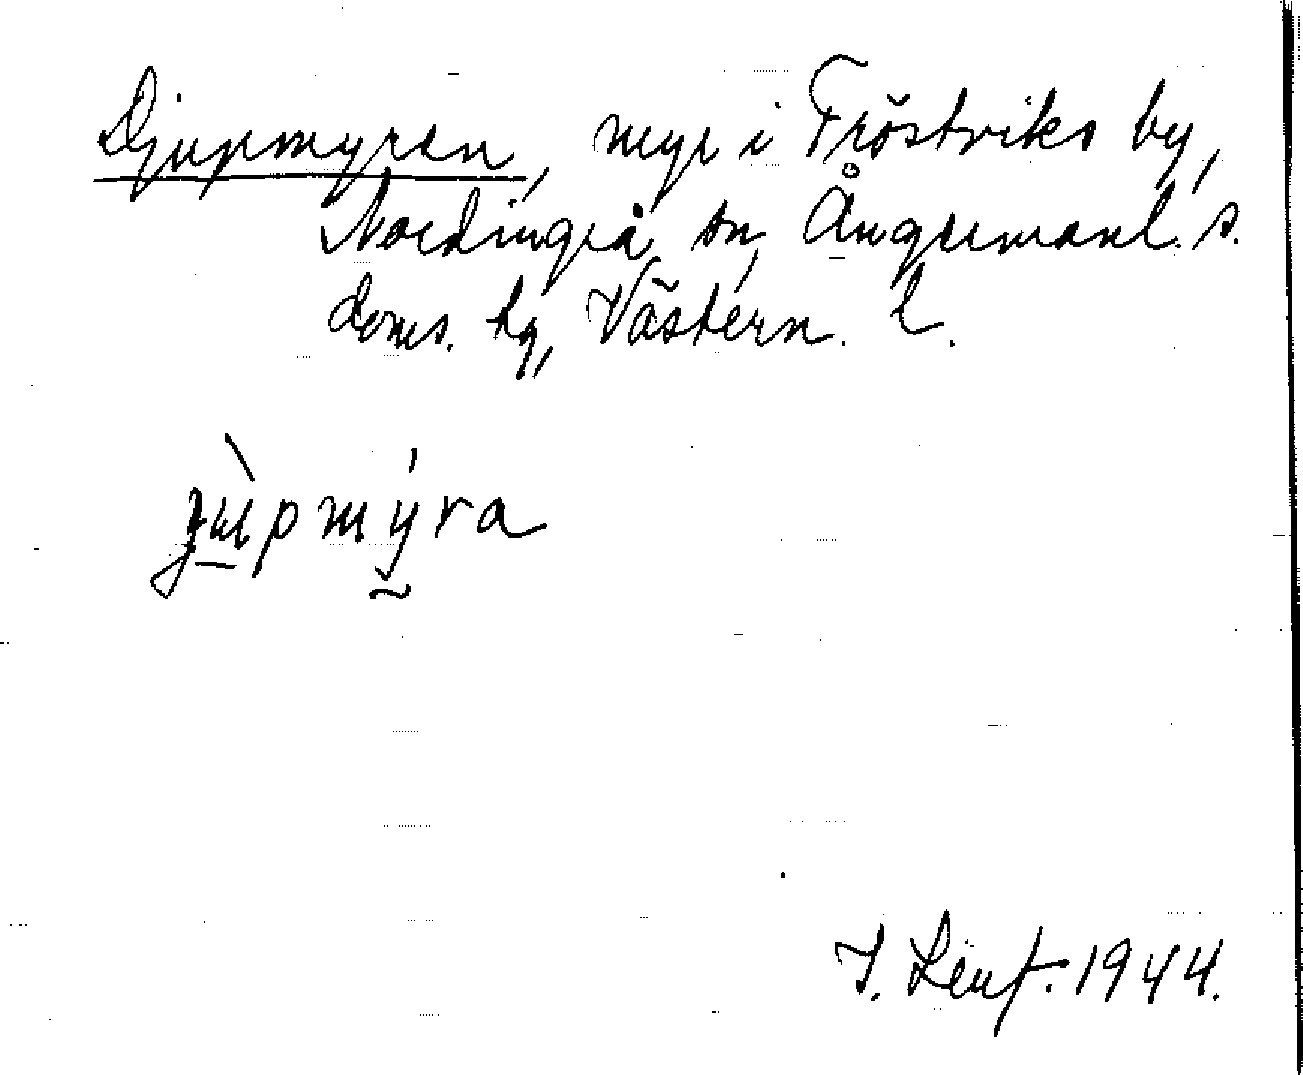 Djupmyren, myr i Fröstviks by,
Nordingrå sn, Ångermanl. s.
doms. tg, Västern. l.
jùpmýra
1944.